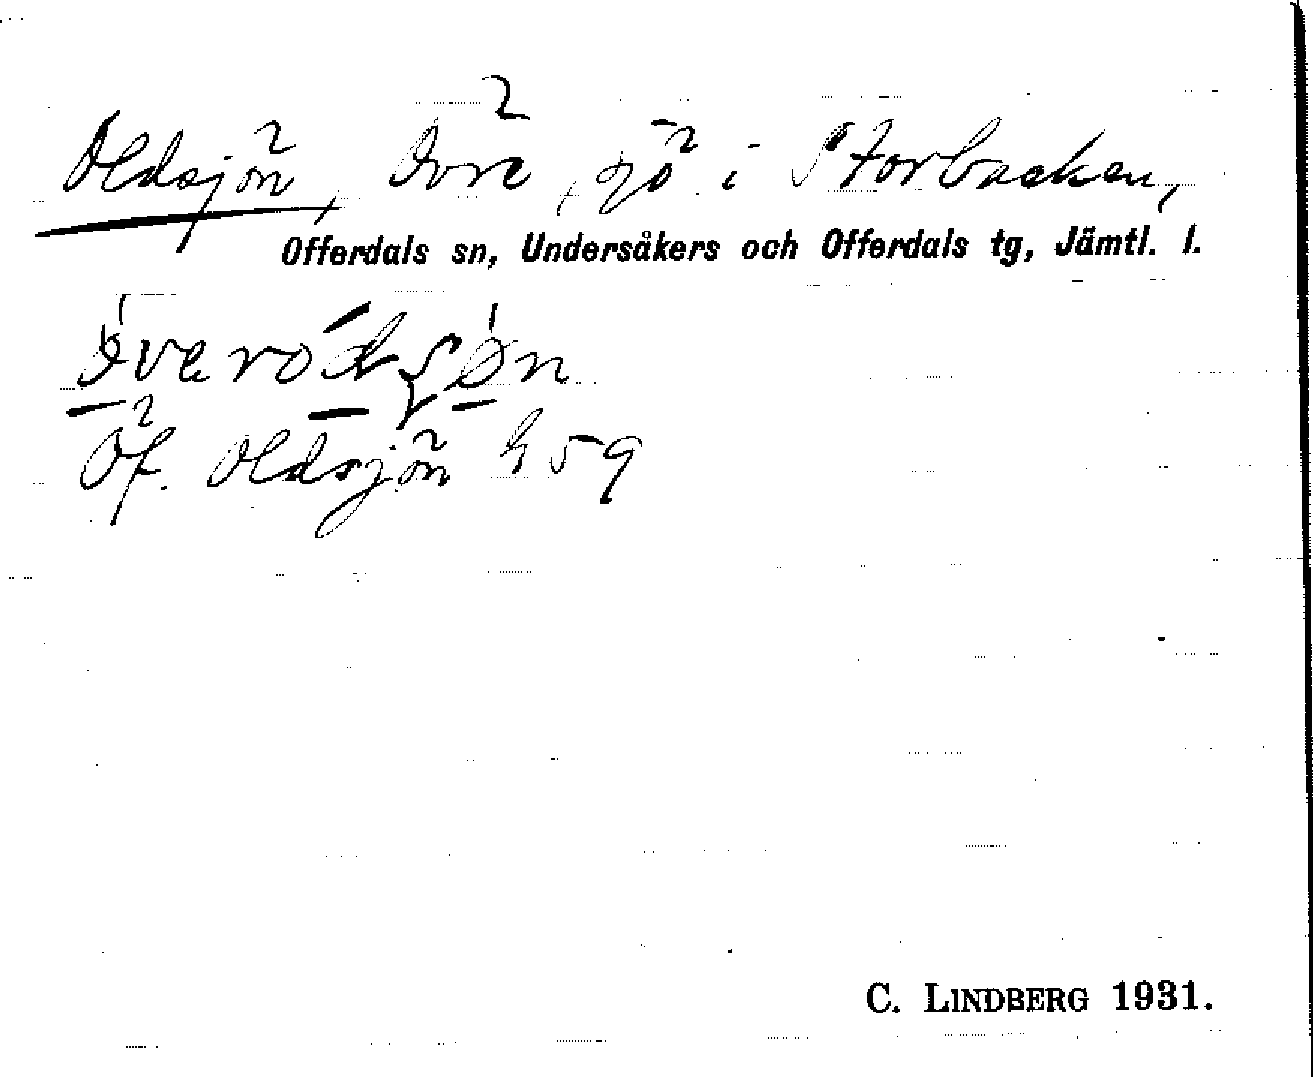 Oldsjön, Övre, sjö i Storbacken,
Offerdals sn, Undersåkers och Offerdals tg, Jämtl. l.
Öf. Oldsjön G 59
C. LINDBERG 1931.